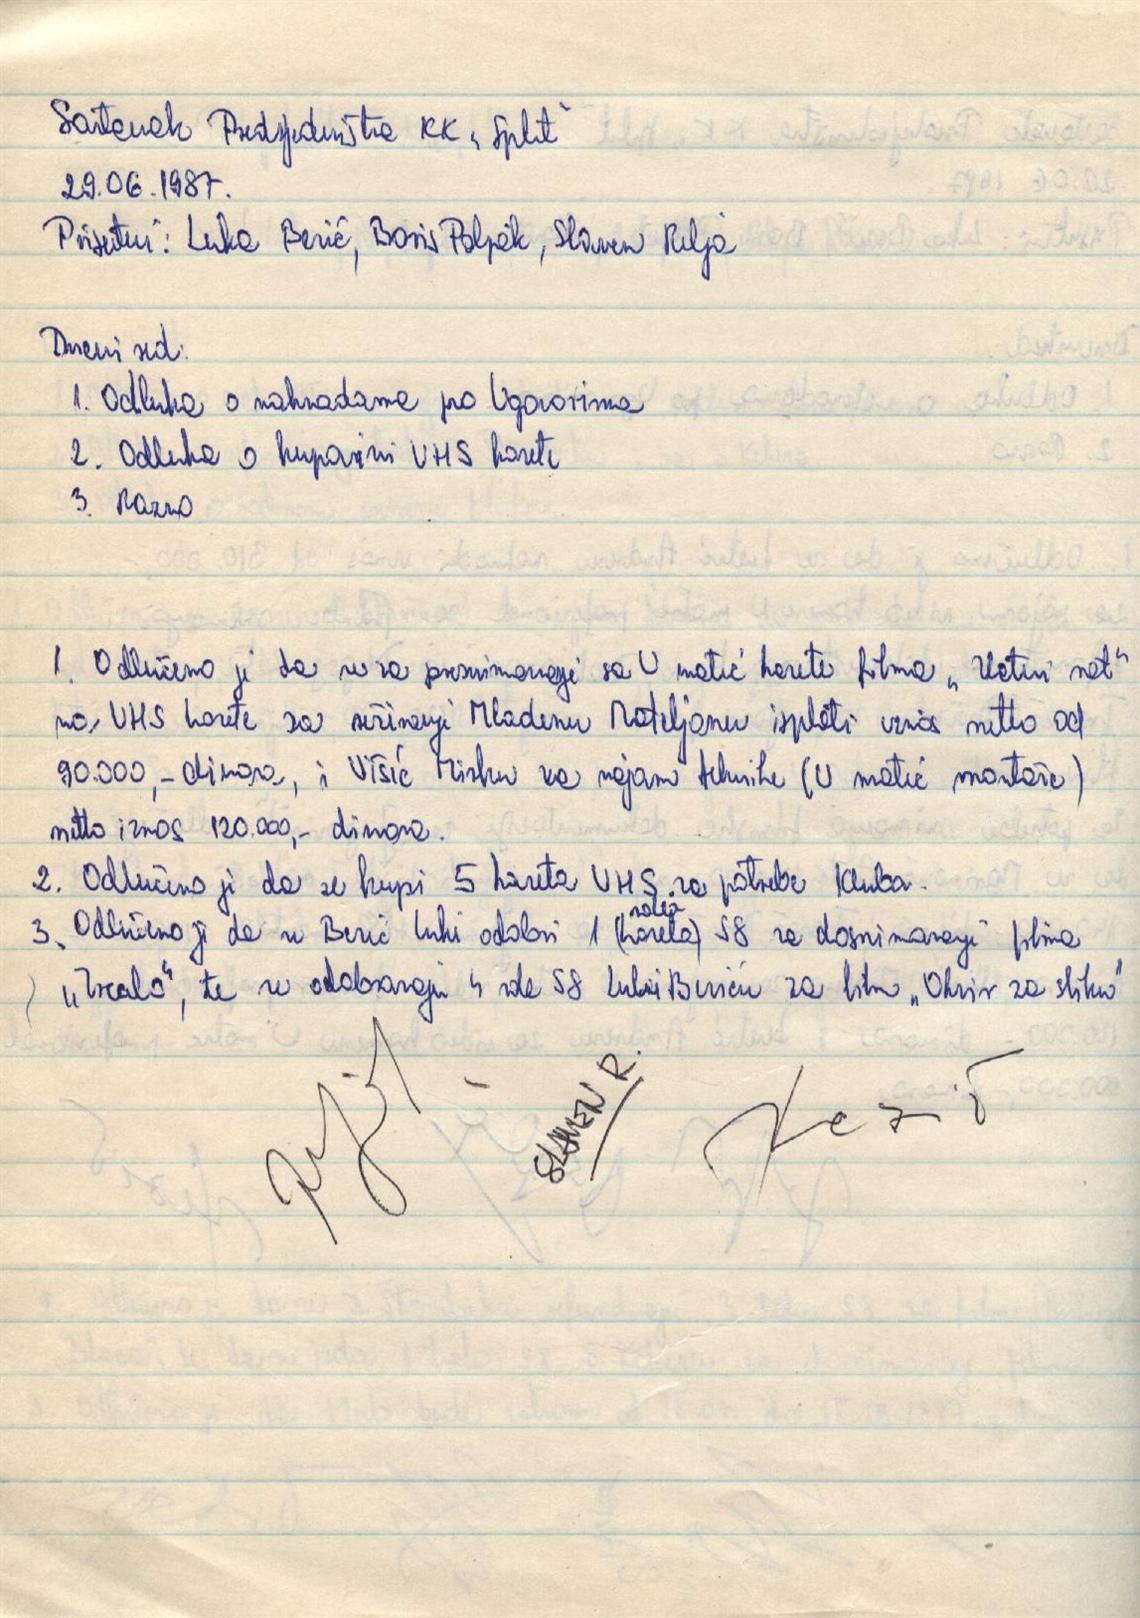 Sastanak Predsjedništva KK „Split“
29.06.1987.
Prisutni: Luka Bezić, Boris Poljak, Slaven Relja
Dnevni red:
1. Odluka o naknadama po Ugovorima
2. Odluka o kupovini VHS kazeta
3. Razno
1. Odlučeno je da se za presnimavanje sa U matić kazete filma „ net“
na VHS kazete za snimanje Mladenu Mateljanu isplati iznos netto od
90.000,- dinara, i Višić Mirku za najam tehnike (U matić montaže)
netto iznos 120.000,- dinara.
2. Odlučeno je da se kupi 5 kazeta VHS za potrebe Kluba.
rola
3. Odlučeno je da se Bezić Luki odobri 1 (kazeta) S8 za dosnimavanje filma
„Zrcalo“, te se odobravaju 4 role S8 Luki Beziću za film „Okvir za sliku“
SLAVEN R.